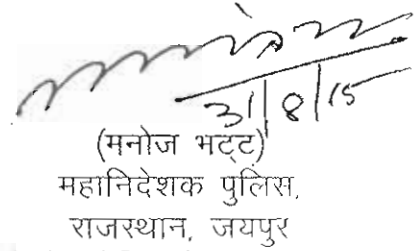 31/8/15
(मनोज भट्ट)
महानिदेशक पुलिस,
राजस्थान, जयपुर